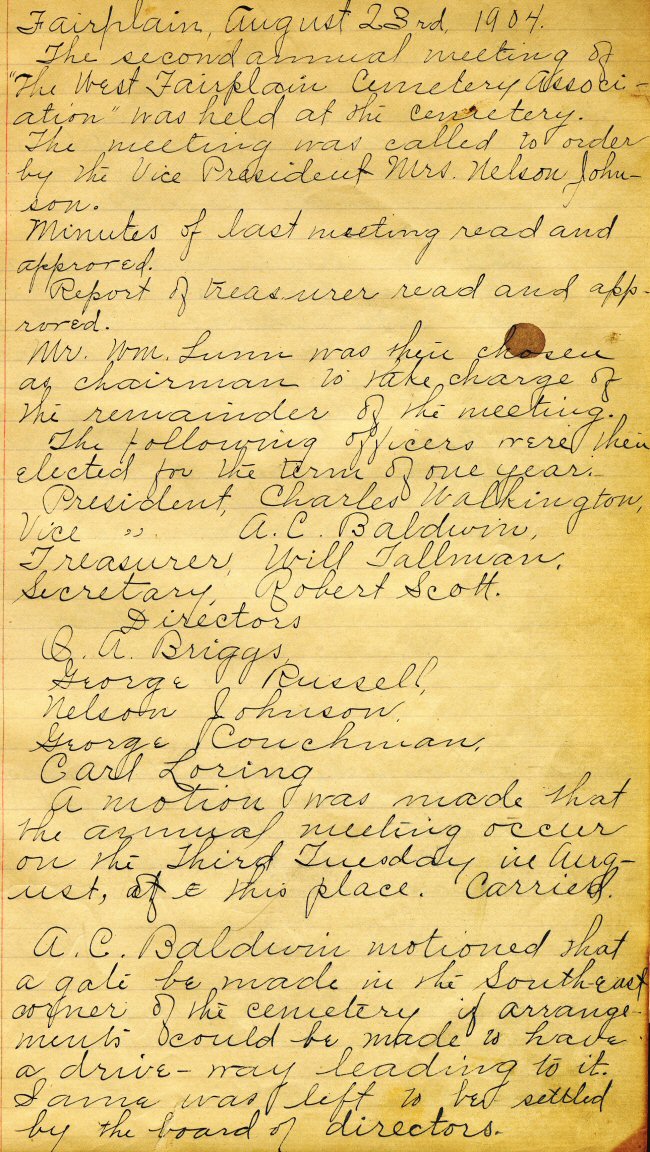 Fairplain, August 23rd, 1904.
The second annual meeting of
"The West Fairplain Cemetery Associ-
ation" was held at the cemetery.
The meeting was called to order
by the Vice President Mrs. Nelson John-
son.
Minutes of last meeting read and
approved.
Report of treasurer read and app-
roved.
Mr. Wm. Lunn was then chosen
as chairman to take charge of
the remainder of the meeting.
The following officers were then
elected for the term of one year.
President, Charles Walkington,
Vice " A.C. Baldwin,
Treasurer, Will Tallman,
Secretary, Robert Scott.
Directors
O. A. Briggs,
George Russell,
Nelson Johnson,
George Couchman,
Carl Loring
A motion was made that
the annual meeting occur
on the Third Tuesday in Aug-
ust, at this place. Carried.
A.C. Baldwin motioned that
a gate be made in the South-east
corner of the cemetery if arrange-
ments could be made to have
a drive-way leading to it.
Same was left to be settled
by the board of directors.